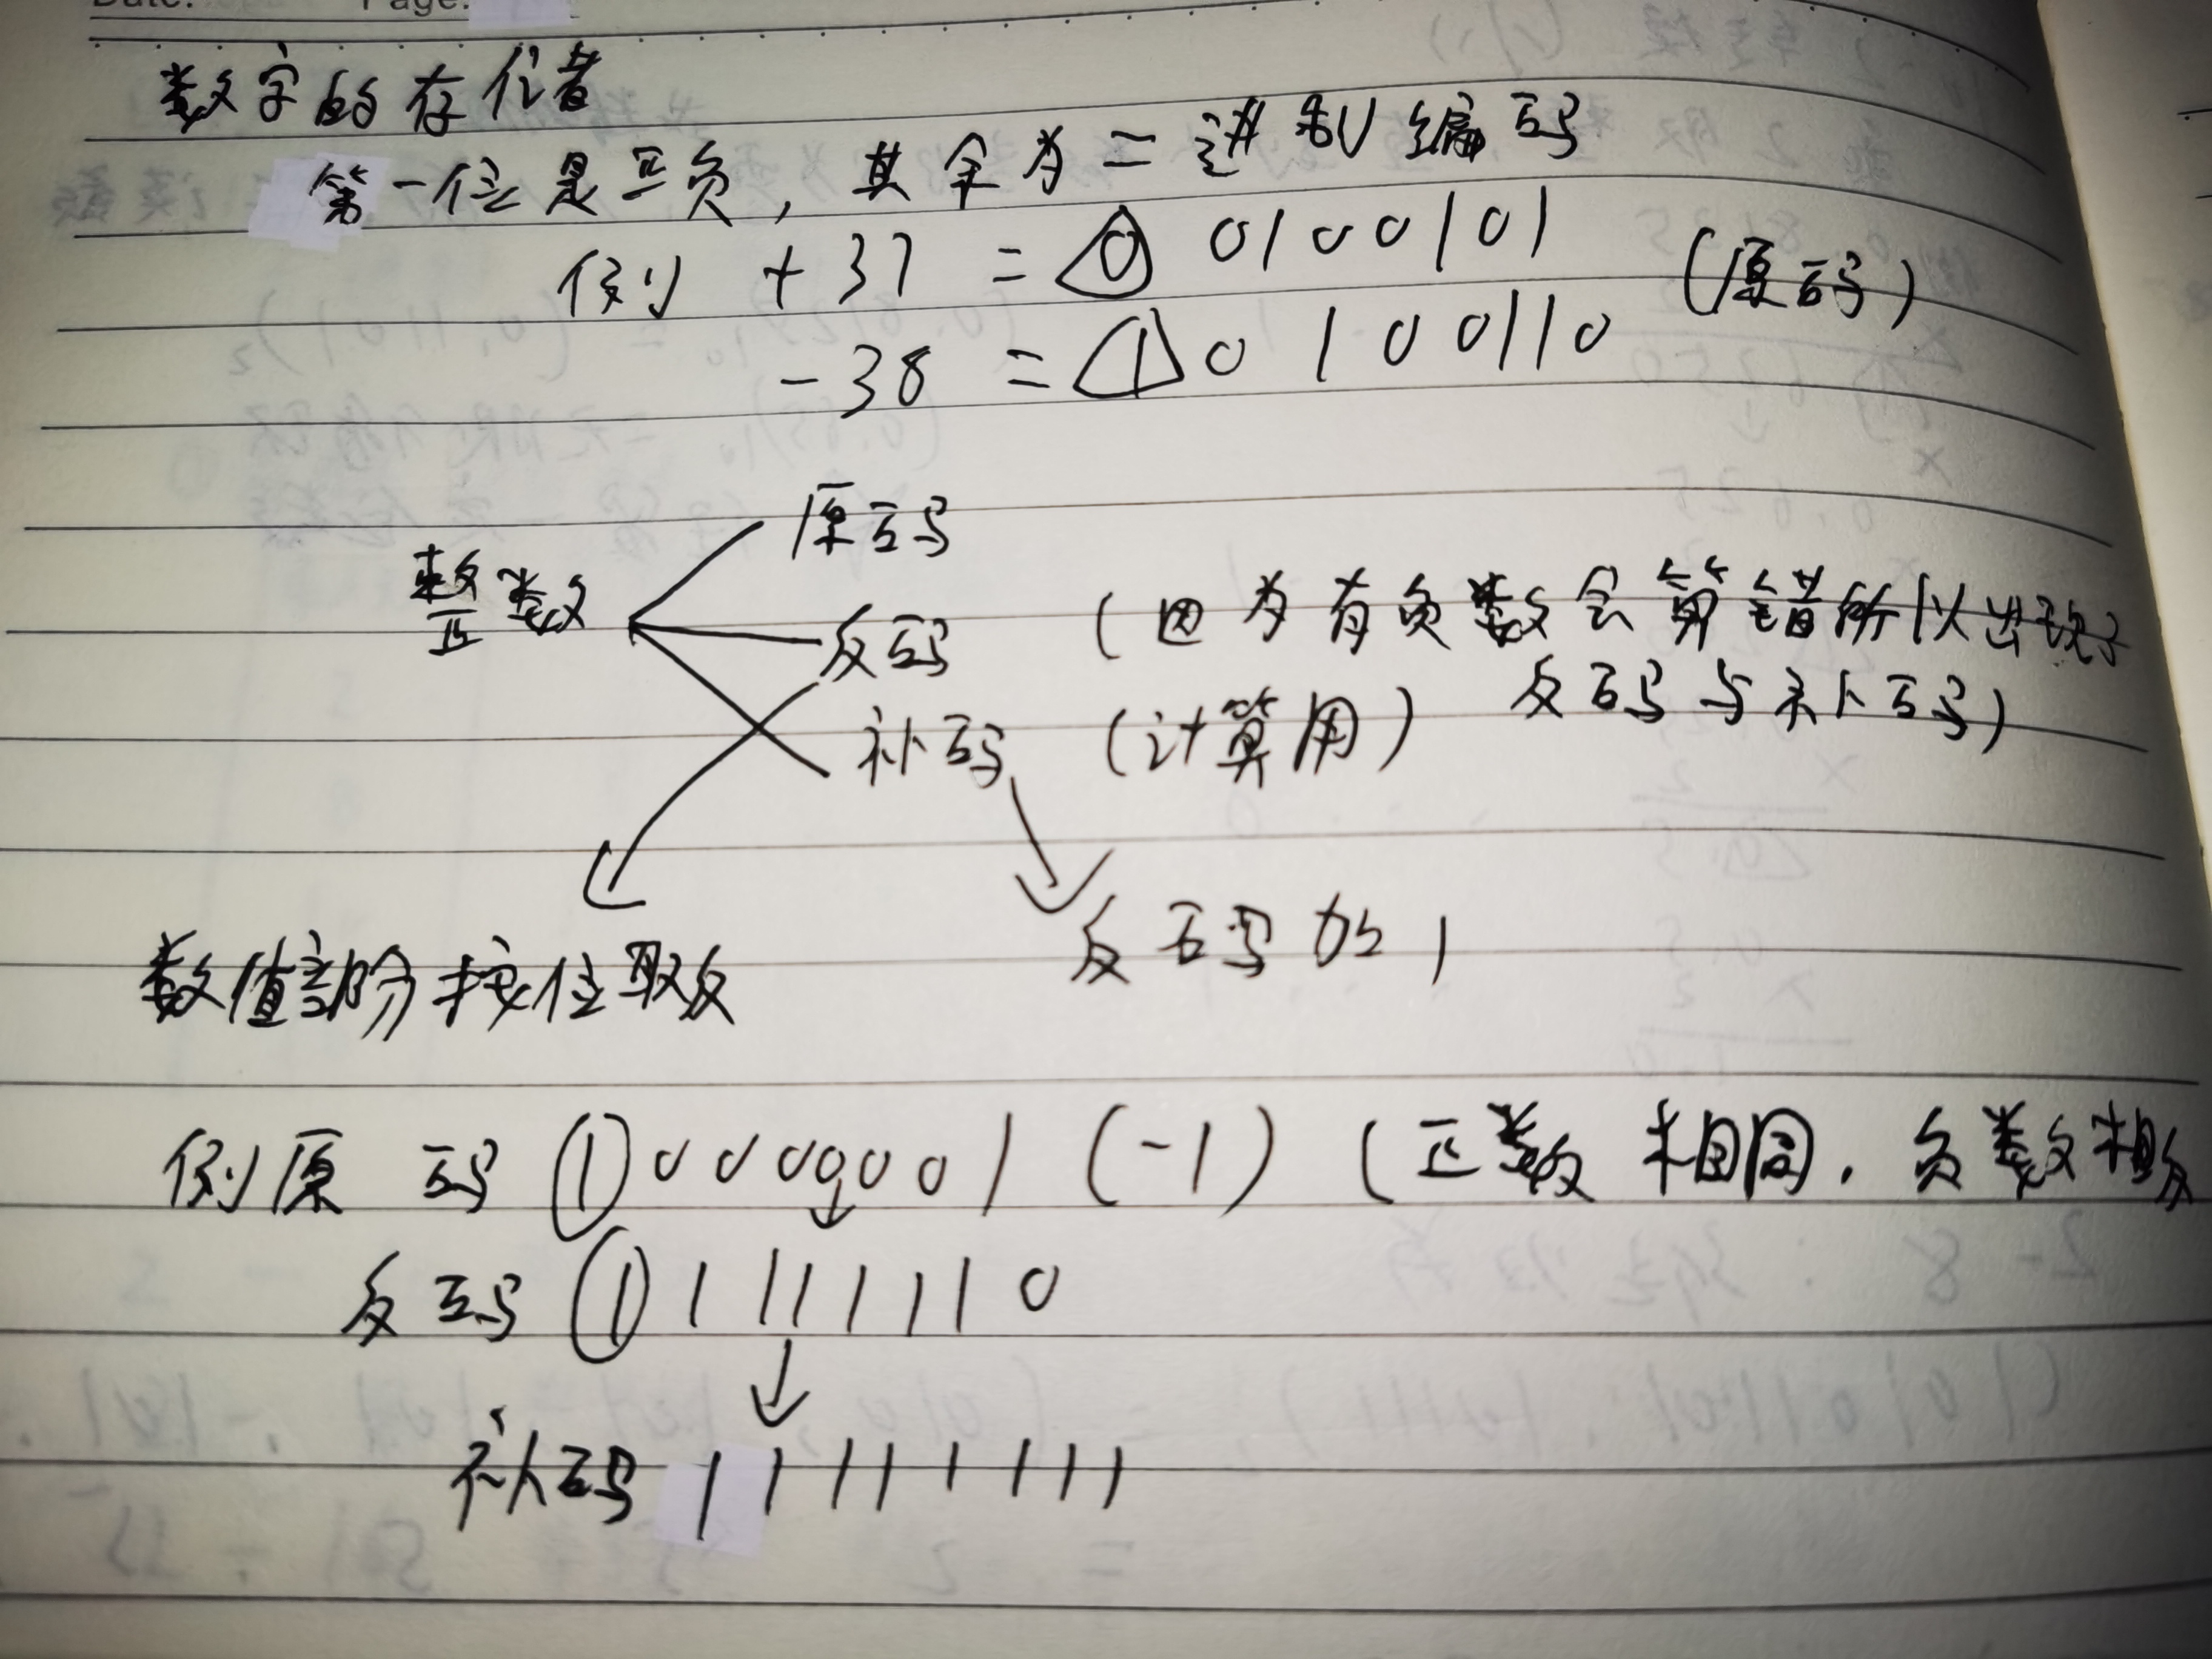 Date: Page:
数字的存储
第一位是正负，其余为二进制编码
例 +37 = 0 0100101 (原码)
-38 = 1 0100110
整数
原码
反码 (因为有负数会算错所以出现了
反码与补码)
补码 (计算用)
反码加1
数值部分按位取反
例原码 1 0000001 (-1) (正数相同，负数相反
反码 1 1111110
补码 11111111